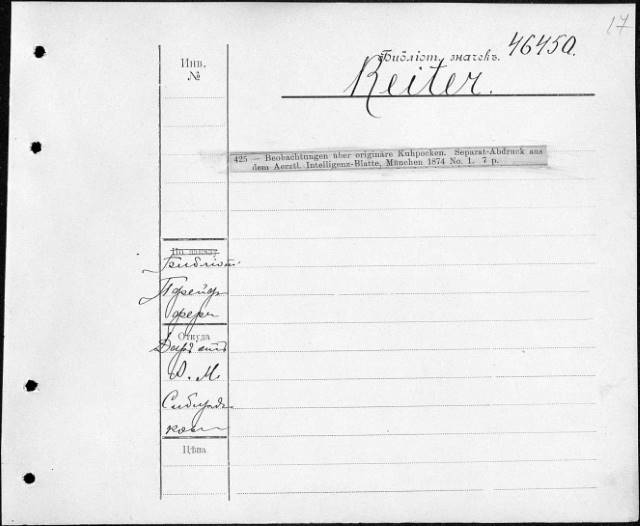 17
Библіот. значекъ. 46450.
Reiter.
Инв.
№
425 — Beobachtungen über originäre Kuhpocken. Separat-Abdruck aus
dem Aerztl. Intelligenz-Blatte, München 1874 No. 1. 7 p.
Библіот.
Пфейф-
фера
Откуда
Даръ отъ
Сибиряко-
Цѣна